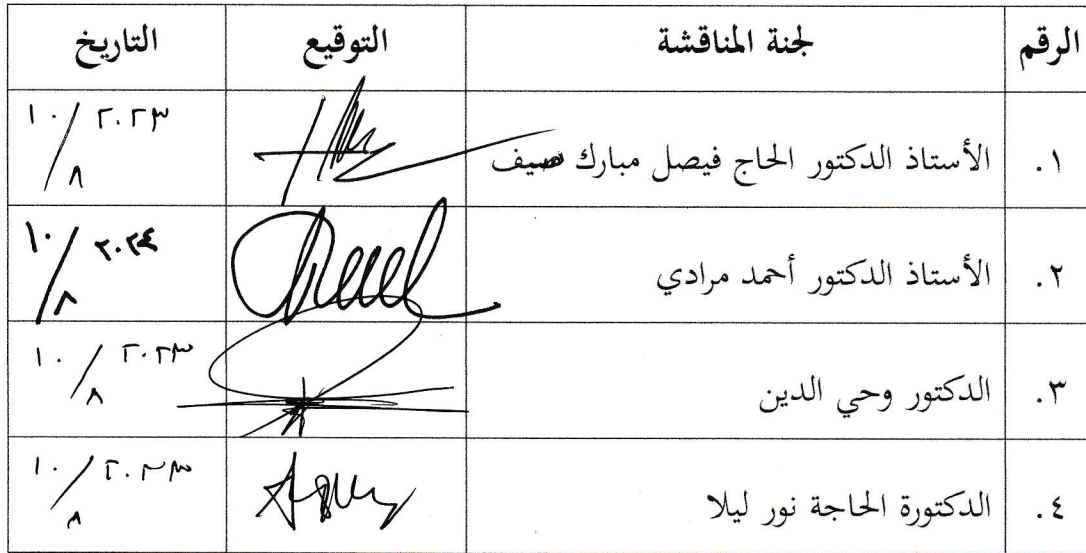 الرقم لجنة المناقشة التوقيع التاريخ
١. الأستاذ الدكتور الحاج فيصل مبارك صيف ١٠/٨ ٢٠٢٣
٢. الأستاذ الدكتور أحمد مرادي ١٠/٨
٣. الدكتور وحي الدين ١٠/٨ ٢٠٢٣
٤. الدكتورة الحاجة نور ليلا ١٠/٨ ٢٠٢٣